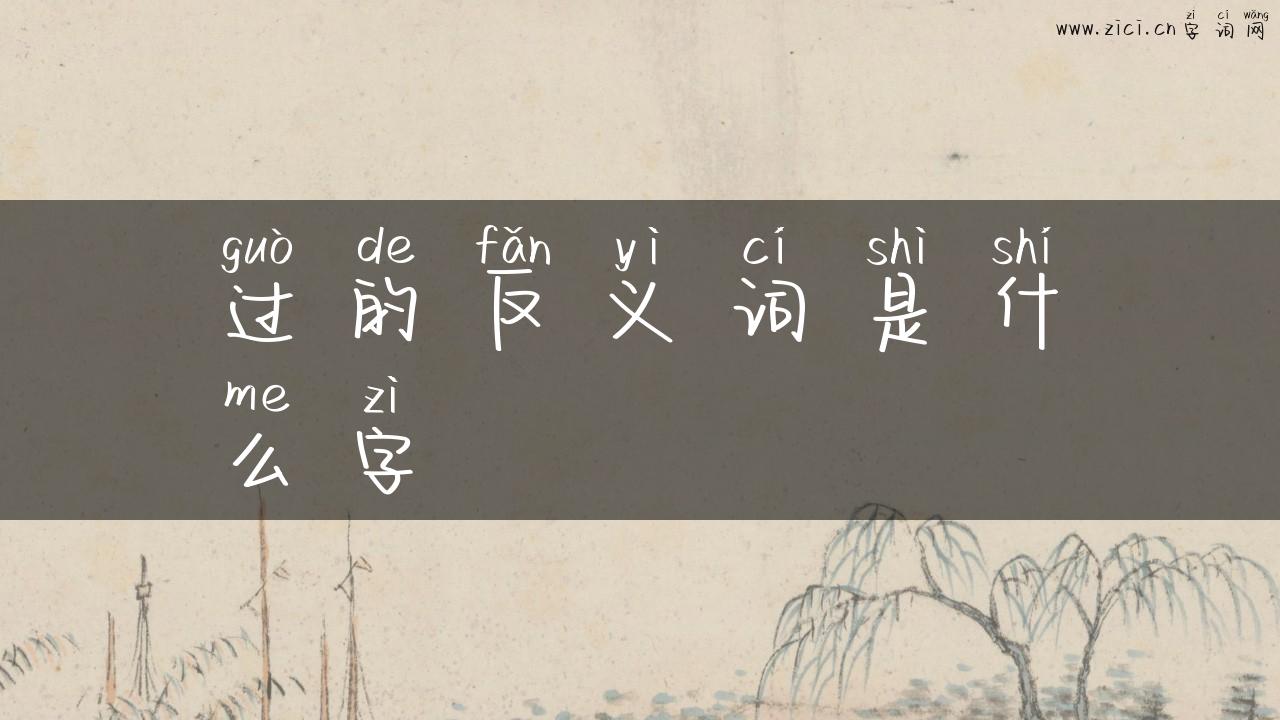 zì cí wǎng
www.zici.cn 字 词 网
guò de fǎn yì cí shì shí
过 的 反 义 词 是 什
me zì
么 字